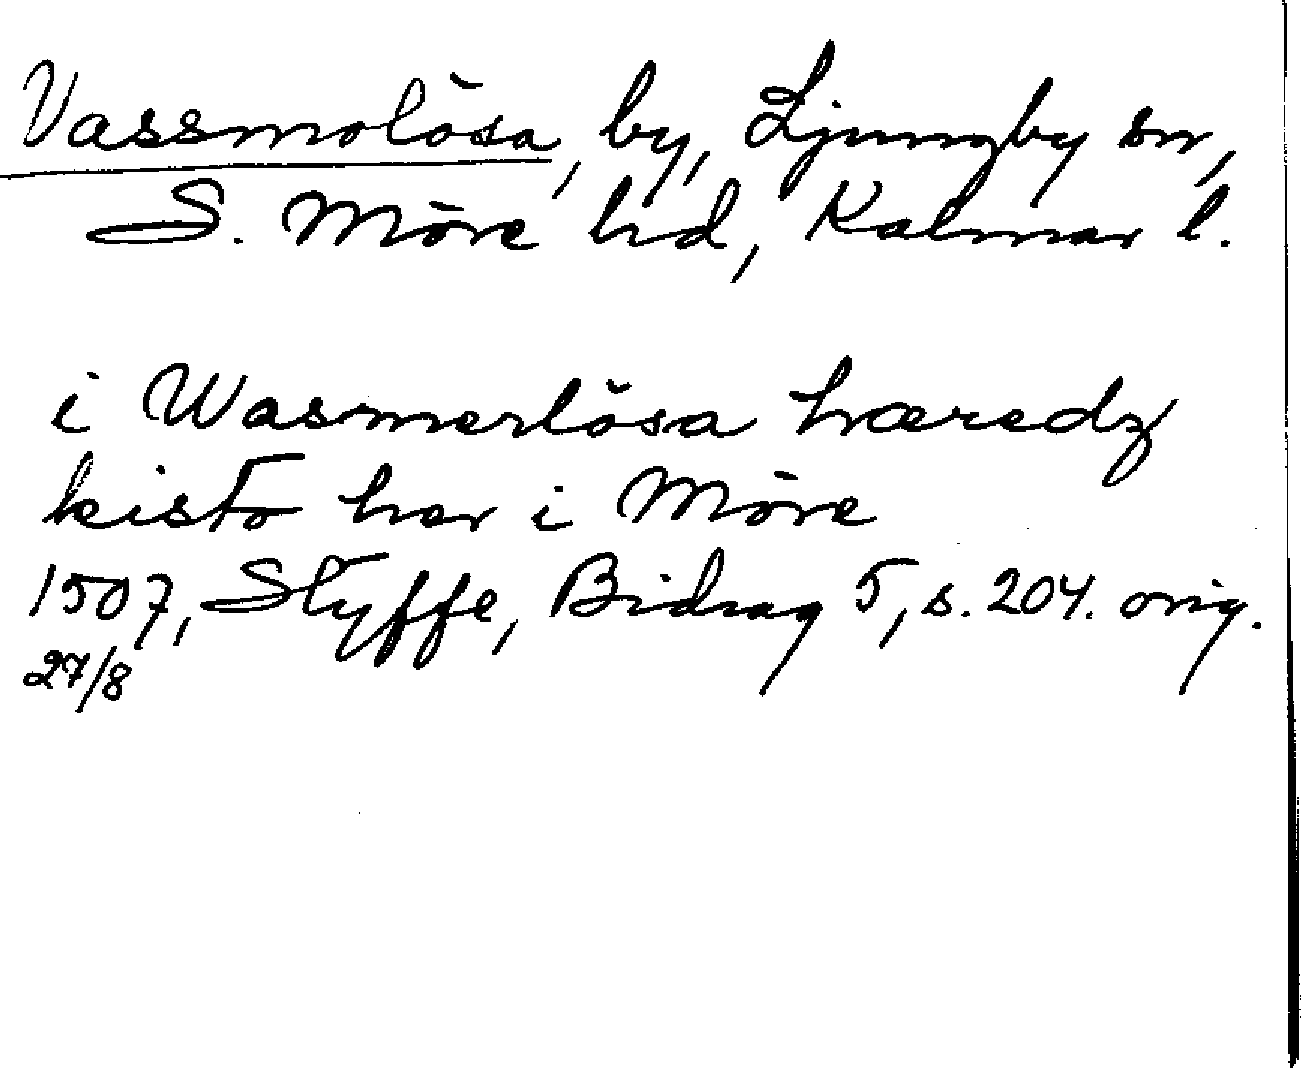 Vassmolösa, by, Ljungby sn,
S. Möre hd, Kalmar l.
i Wasmerlösa hæredz
kisto har i Möre
1507, Styffe, Bidrag 5, s. 204. orig.
27/8